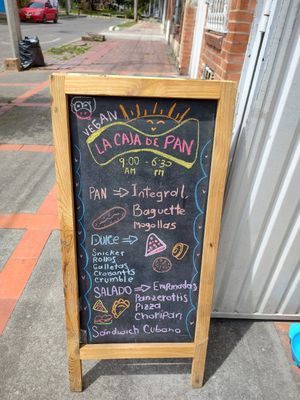 VEGAN
LA CAJA DE PAN
9:00 - 6:30
AM PM
PAN ⇒ Integral
Baguette
Mogollas
DULCE ⇒
Snicker
Rollos
Galletas
Croissants
crumble
SALADO ⇒ Empanadas
Panzerottis
Pizza
Choripan
Sandwich Cubano